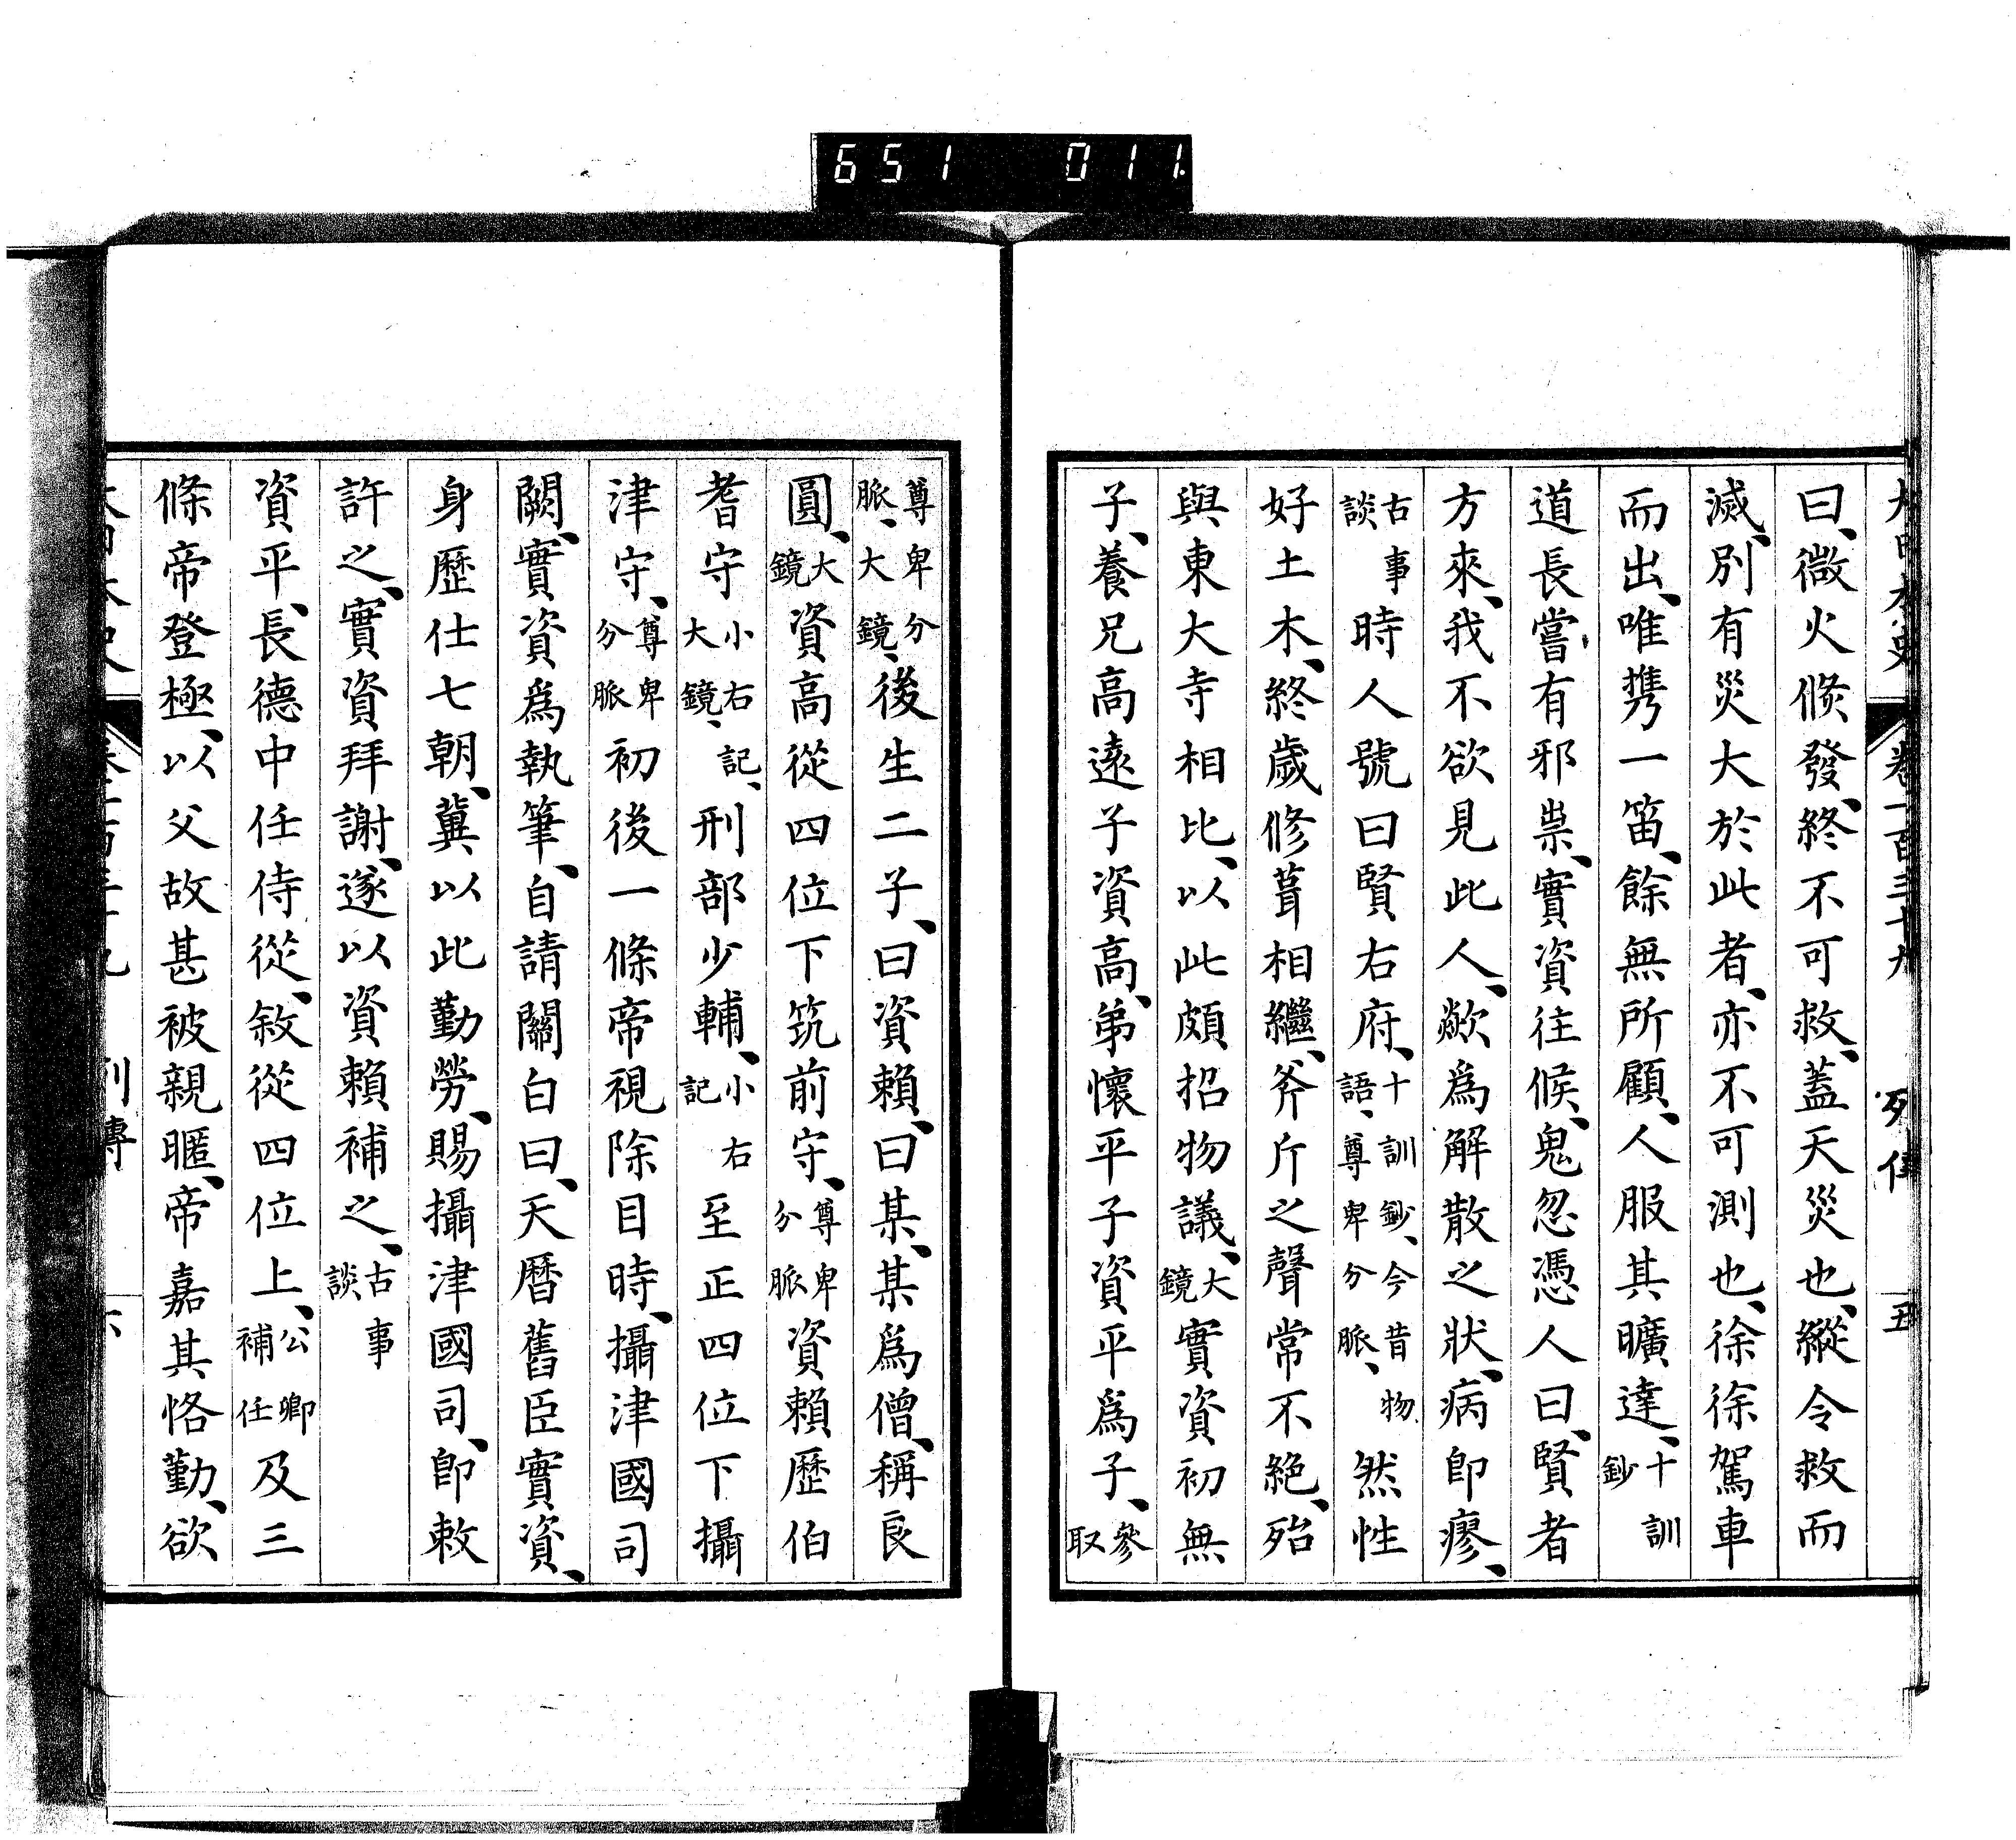 651 011
大日本史 卷一百三十九 列傳 五
曰、微火倏發、終不可救、蓋天災也、縱令救而
滅、別有災大於此者、亦不可測也、徐徐駕車
而出、唯携一笛、餘無所顧、人服其曠達、十訓鈔
道長嘗有邪祟、實資往候、鬼忽憑人曰、賢者
方來、我不欲見此人、歘爲解散之狀、病卽瘳、
古事談時人號曰賢右府、十訓鈔、今昔物語、尊卑分脈、然性
好土木、終歲修葺相繼、斧斤之聲常不絶、殆
與東大寺相比、以此頗招物議、大鏡實資初無
子、養兄高遠子資高、弟懷平子資平爲子、參取
尊卑分脈、大鏡、後生二子、曰資賴、曰某、某爲僧、稱良
圓、大鏡資高從四位下筑前守、尊卑分脈資賴歷伯
耆守小右記、大鏡、刑部少輔、小右記至正四位下攝
津守、尊卑分脈初後一條帝視除目時、攝津國司
闕、實資爲執筆、自請關白曰、天曆舊臣實資、
身歷仕七朝、冀以此勤勞、賜攝津國司、卽敕
許之、實資拜謝、遂以資賴補之、古事談
資平、長德中任侍從、敘從四位上、公卿補任及三
條帝登極、以父故甚被親暱、帝嘉其恪勤、欲
列傳